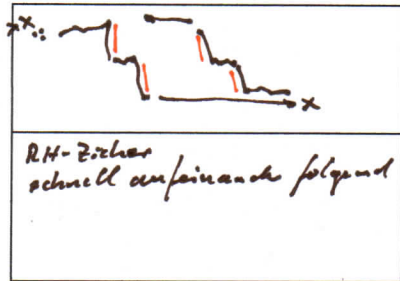 x
x
RH-Zicher
schnell aufeinander folgend